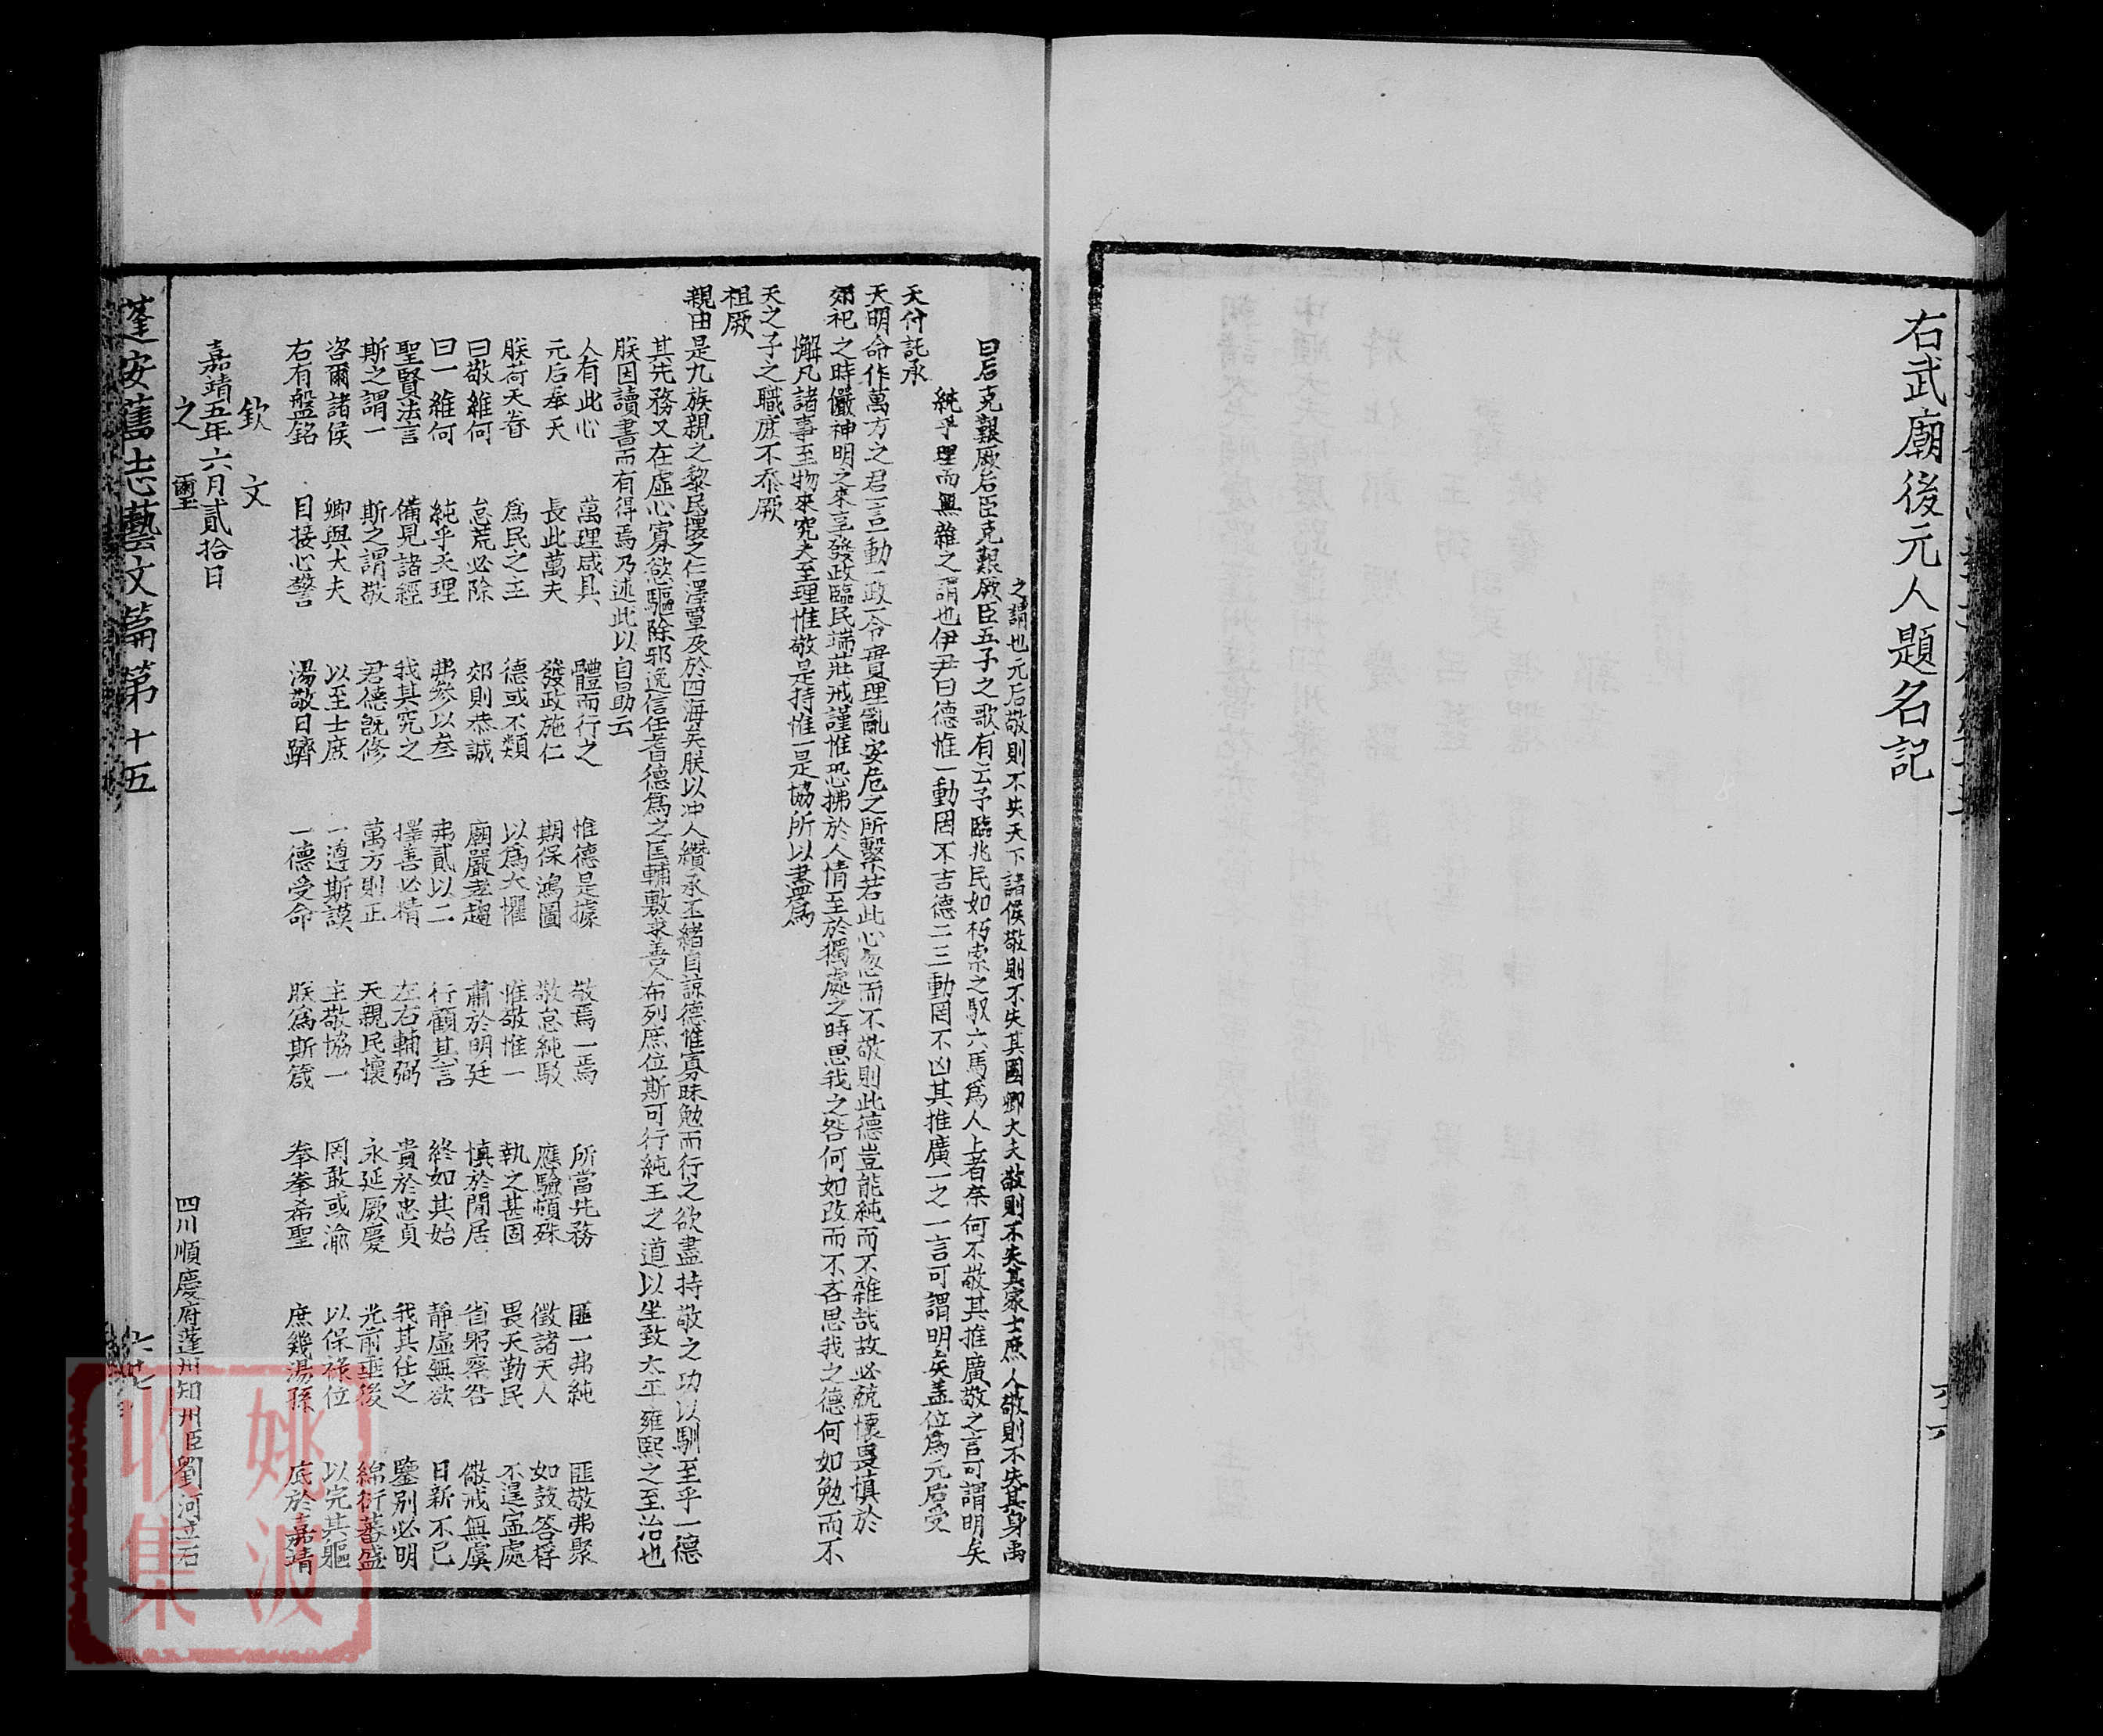 右武廟後元人題名記
之謂也元后敬則不失天下諸侯敬則不失其國卿大夫敬則不失其家士庶人敬則不失其身禹
曰后克艱厥后臣克艱厥臣五子之歌有云予臨兆民如朽索之馭六馬為人上者柰何不敬其推廣敬之言可謂明矣
純乎理而無雜之謂也伊尹曰德惟一動罔不吉德二三動罔不凶其推廣一之一言可謂明矣蓋位為元后受
天付託承
天明命作萬方之君一言一動一政一令實理亂安危之所繫若此心忽而不敬則此德豈能純而不雜哉故必兢懷畏慎於
郊祀之時儼神明之來享發政臨民端莊戒謹惟恐拂於人情至於獨處之時思我之咎何如改而不吝思我之德何如勉而不
懈凡諸事至物來究夫至理惟敬是持惟一是協所以盡為
天之子之職庶不忝厥
祖厥
親由是九族親之黎民懷之仁澤覃及於四海矣朕以沖人纘承丕緒自諒德惟寡昧勉而行之欲盡持敬之功以馴至乎一德
其先務又在虛心寡慾驅除邪逸信任耆德為之匡輔敷求善人布列庶位斯可行純王之道以坐致太平雍熙之至治也
朕因讀書而有得焉乃述此以自勗云
人有此心 萬理咸具 體而行之 惟德是據 敬焉一焉 所當先務 匪一弗純 匪敬弗聚
元后奉天 長此萬夫 發政施仁 期保鴻圖 敬怠純駁 應驗頓殊 徵諸天人 如鼓答桴
朕荷天眷 為民之主 德或不類 以為大懼 惟敬惟一 執之甚固 畏天勤民 不遑寍處
曰敬維何 怠荒必除 郊則恭誠 廟嚴孝趨 肅於明廷 慎於閒居 省躬察咎 儆戒無虞
曰一維何 純乎天理 弗參以叁 弗貳以二 行顧其言 終如其始 靜虛無欲 日新不已
聖賢法言 備見諸經 我其究之 擇善必精 左右輔弼 貴於忠貞 我其任之 鑒別必明
斯之謂一 斯之謂敬 君德旣修 萬方則正 天親民懷 永延厥慶 光前垂後 綿衍蕃盛
咨爾諸侯 卿與大夫 以至士庶 一遵斯謨 主敬協一 罔敢或渝 以保祿位 以完其軀
右有盤銘 目接心警 湯敬日躋 一德受命 朕為斯箴 拳拳希聖 庶幾湯孫 底於嘉靖
欽 文
嘉靖五年六月貳拾日
之 璽
四川順慶府蓬州知州臣劉河立石
蓬安舊志藝文篇第十五
姚波
收集